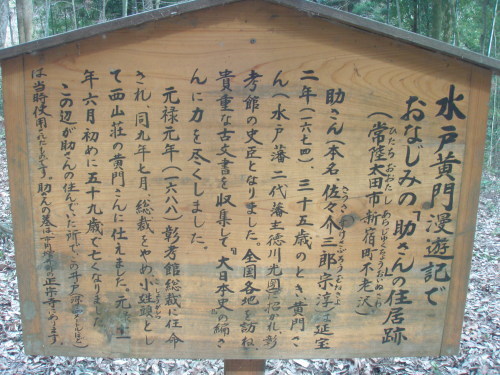 水戸黄門漫遊記で
おなじみの「助さんの住居跡
（常陸太田市新宿町不老沢）
助さん（本名、佐々介三郎宗淳）は延宝
二年（一六七四）、三十五歳のとき、黄門さ
ん（水戸藩二代藩主徳川光圀）に招かれ、彰
考館の史臣となりました。全国各地を訪ね、
貴重な古文書を収集して、"大日本史"の編さ
んに力を尽くしました。
元禄元年（一六八八）彰考館総裁に任命
され、同九年七月、総裁をやめ、小姓頭とし
て西山荘の黄門さんに仕えました。元
年六月初めに五十九歳で亡くなりました。
この辺が助さんの住んでいた所で、
は当時使用されたものです。助さんの墓は
正宗寺にあります。